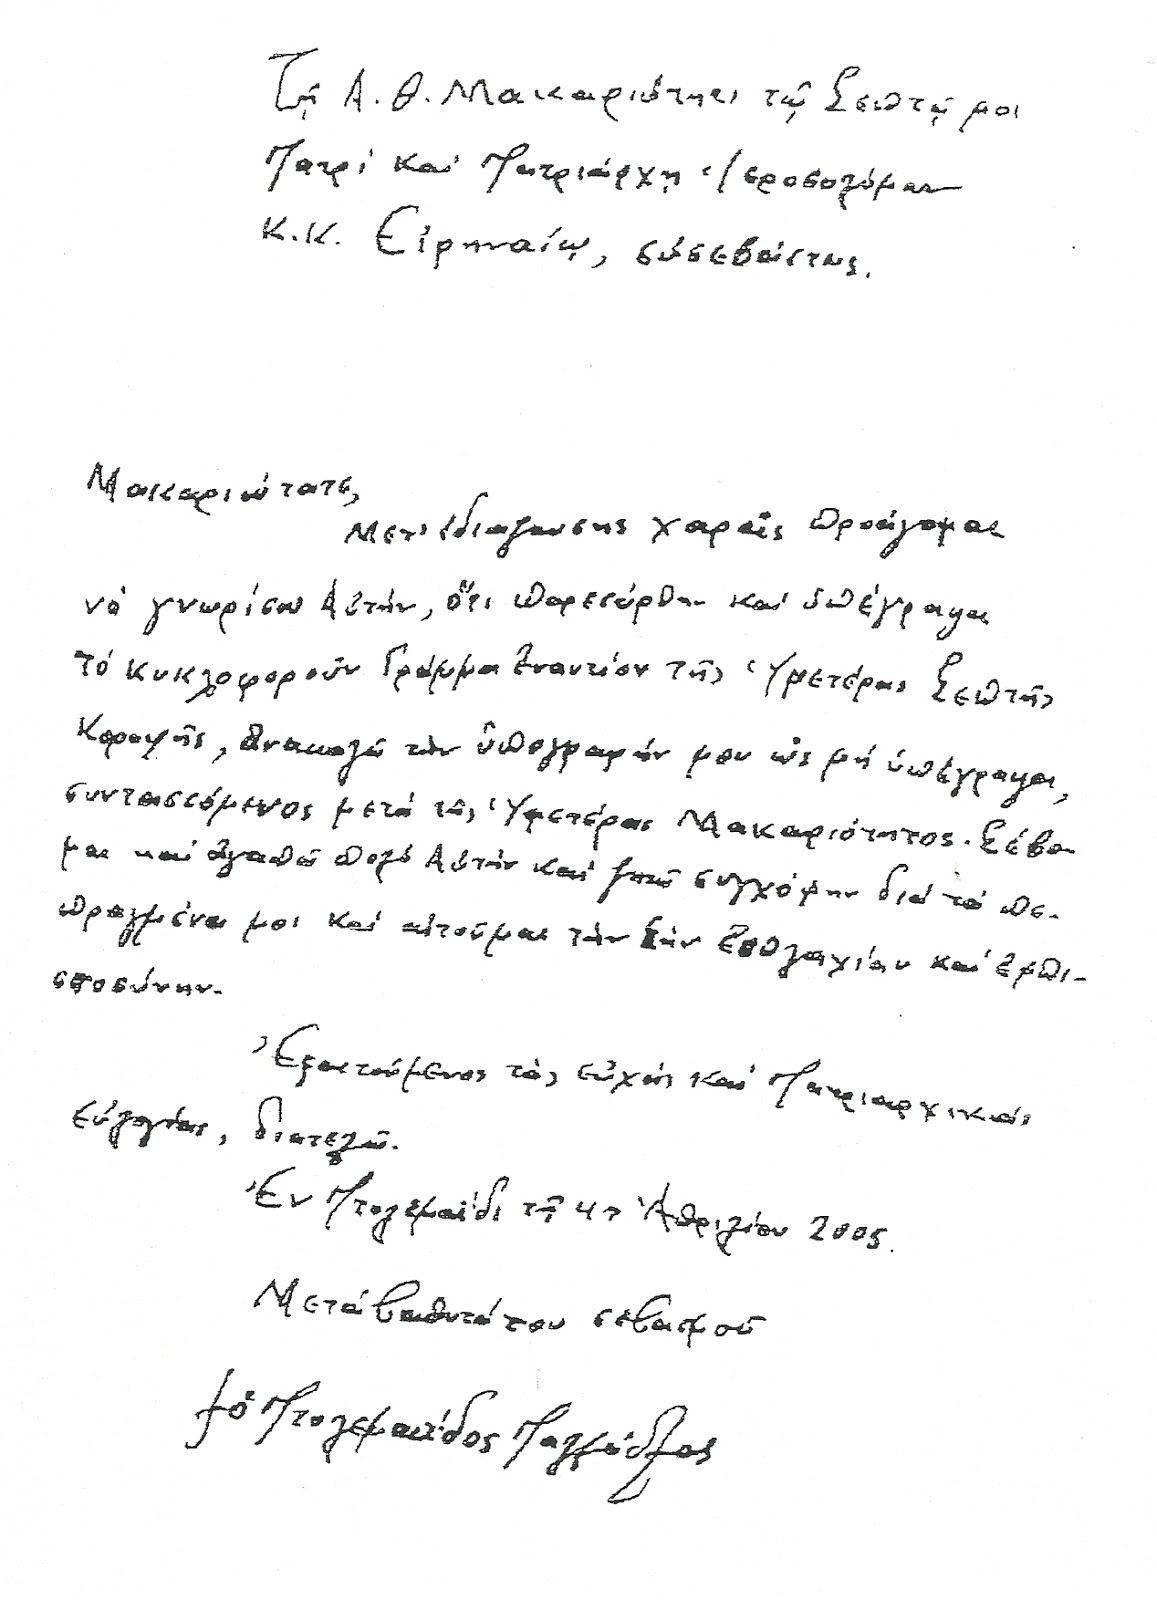 Τῇ Α. Θ. Μακαριότητι τῷ Σεπτῷ μοι
Πατρί καί Πατριάρχῃ Ἱεροσολύμων
Κ.Κ. Εἰρηναίῳ, εὐσεβάστως.
Μακαριώτατε,
Μετ' ἰδιαζούσης χαρᾶς προάγομαι
νά γνωρίσω Αὐτήν, ὅτι παρεσύρθην καί ὑπέγραψα
τό κυκλοφοροῦν Γράμμα ἐναντίον τῆς Ὑμετέρας Σεπτῆς
Κορυφῆς, ἀνακαλῶ τήν ὑπογραφήν μου ὡς μή ὑπέγραψα,
συντασσόμενος μετά τῆς Ὑμετέρας Μακαριότητος. Σέβο-
μαι καί ἀγαπῶ πολύ Αὐτήν καί ζητῶ συγχώρησιν διά τά πε-
πραγμένα μοι καί αἰτοῦμαι τήν εὐσπλαχνίαν καί ἐμπι-
στοσύνην.
Ἐξαιτούμενος τάς εὐχάς καί Πατριαρχικάς
εὐλογίας, διατελῶ.
Ἐν Πτολεμαΐδι τῇ 4ῃ Ἀπριλίου 2005.
Μετά βαθυτάτου σεβασμοῦ
†ὁ Πτολεμαΐδος Παλλάδιος